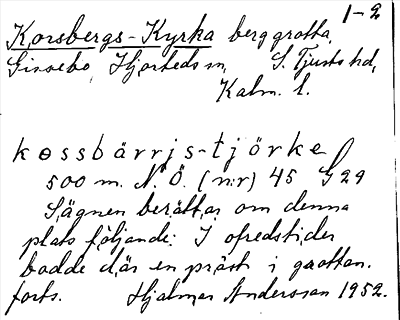 1-2
Korsbergs-Kyrka berggrotta,
Gissebo, Hjorteds sn, S. Tjusts hd,
Kalm. l.
kossbärrjs-tjörke
500 m. N.Ö. (n:r) 45 G 29
Sägnen berättar om denna
plats följande: I ofredstider
bodde där en präst i grottan.
forts. Hjalmar Andersson 1952.